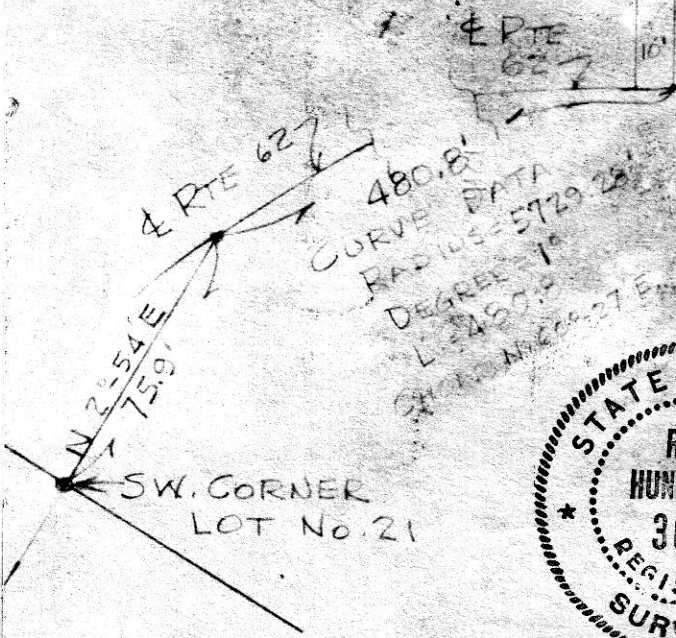 ℄ RTE
62
10'
℄ RTE 62
480.8'
CURVE DATA
RADIUS = 5729.28'
DEGREE = 1°
L = 480.8'
CHORD N.60°-27'E.
N 2°-54'E
75.9'
SW. CORNER
LOT No. 21
STATE
HUN
REGIS
SURV